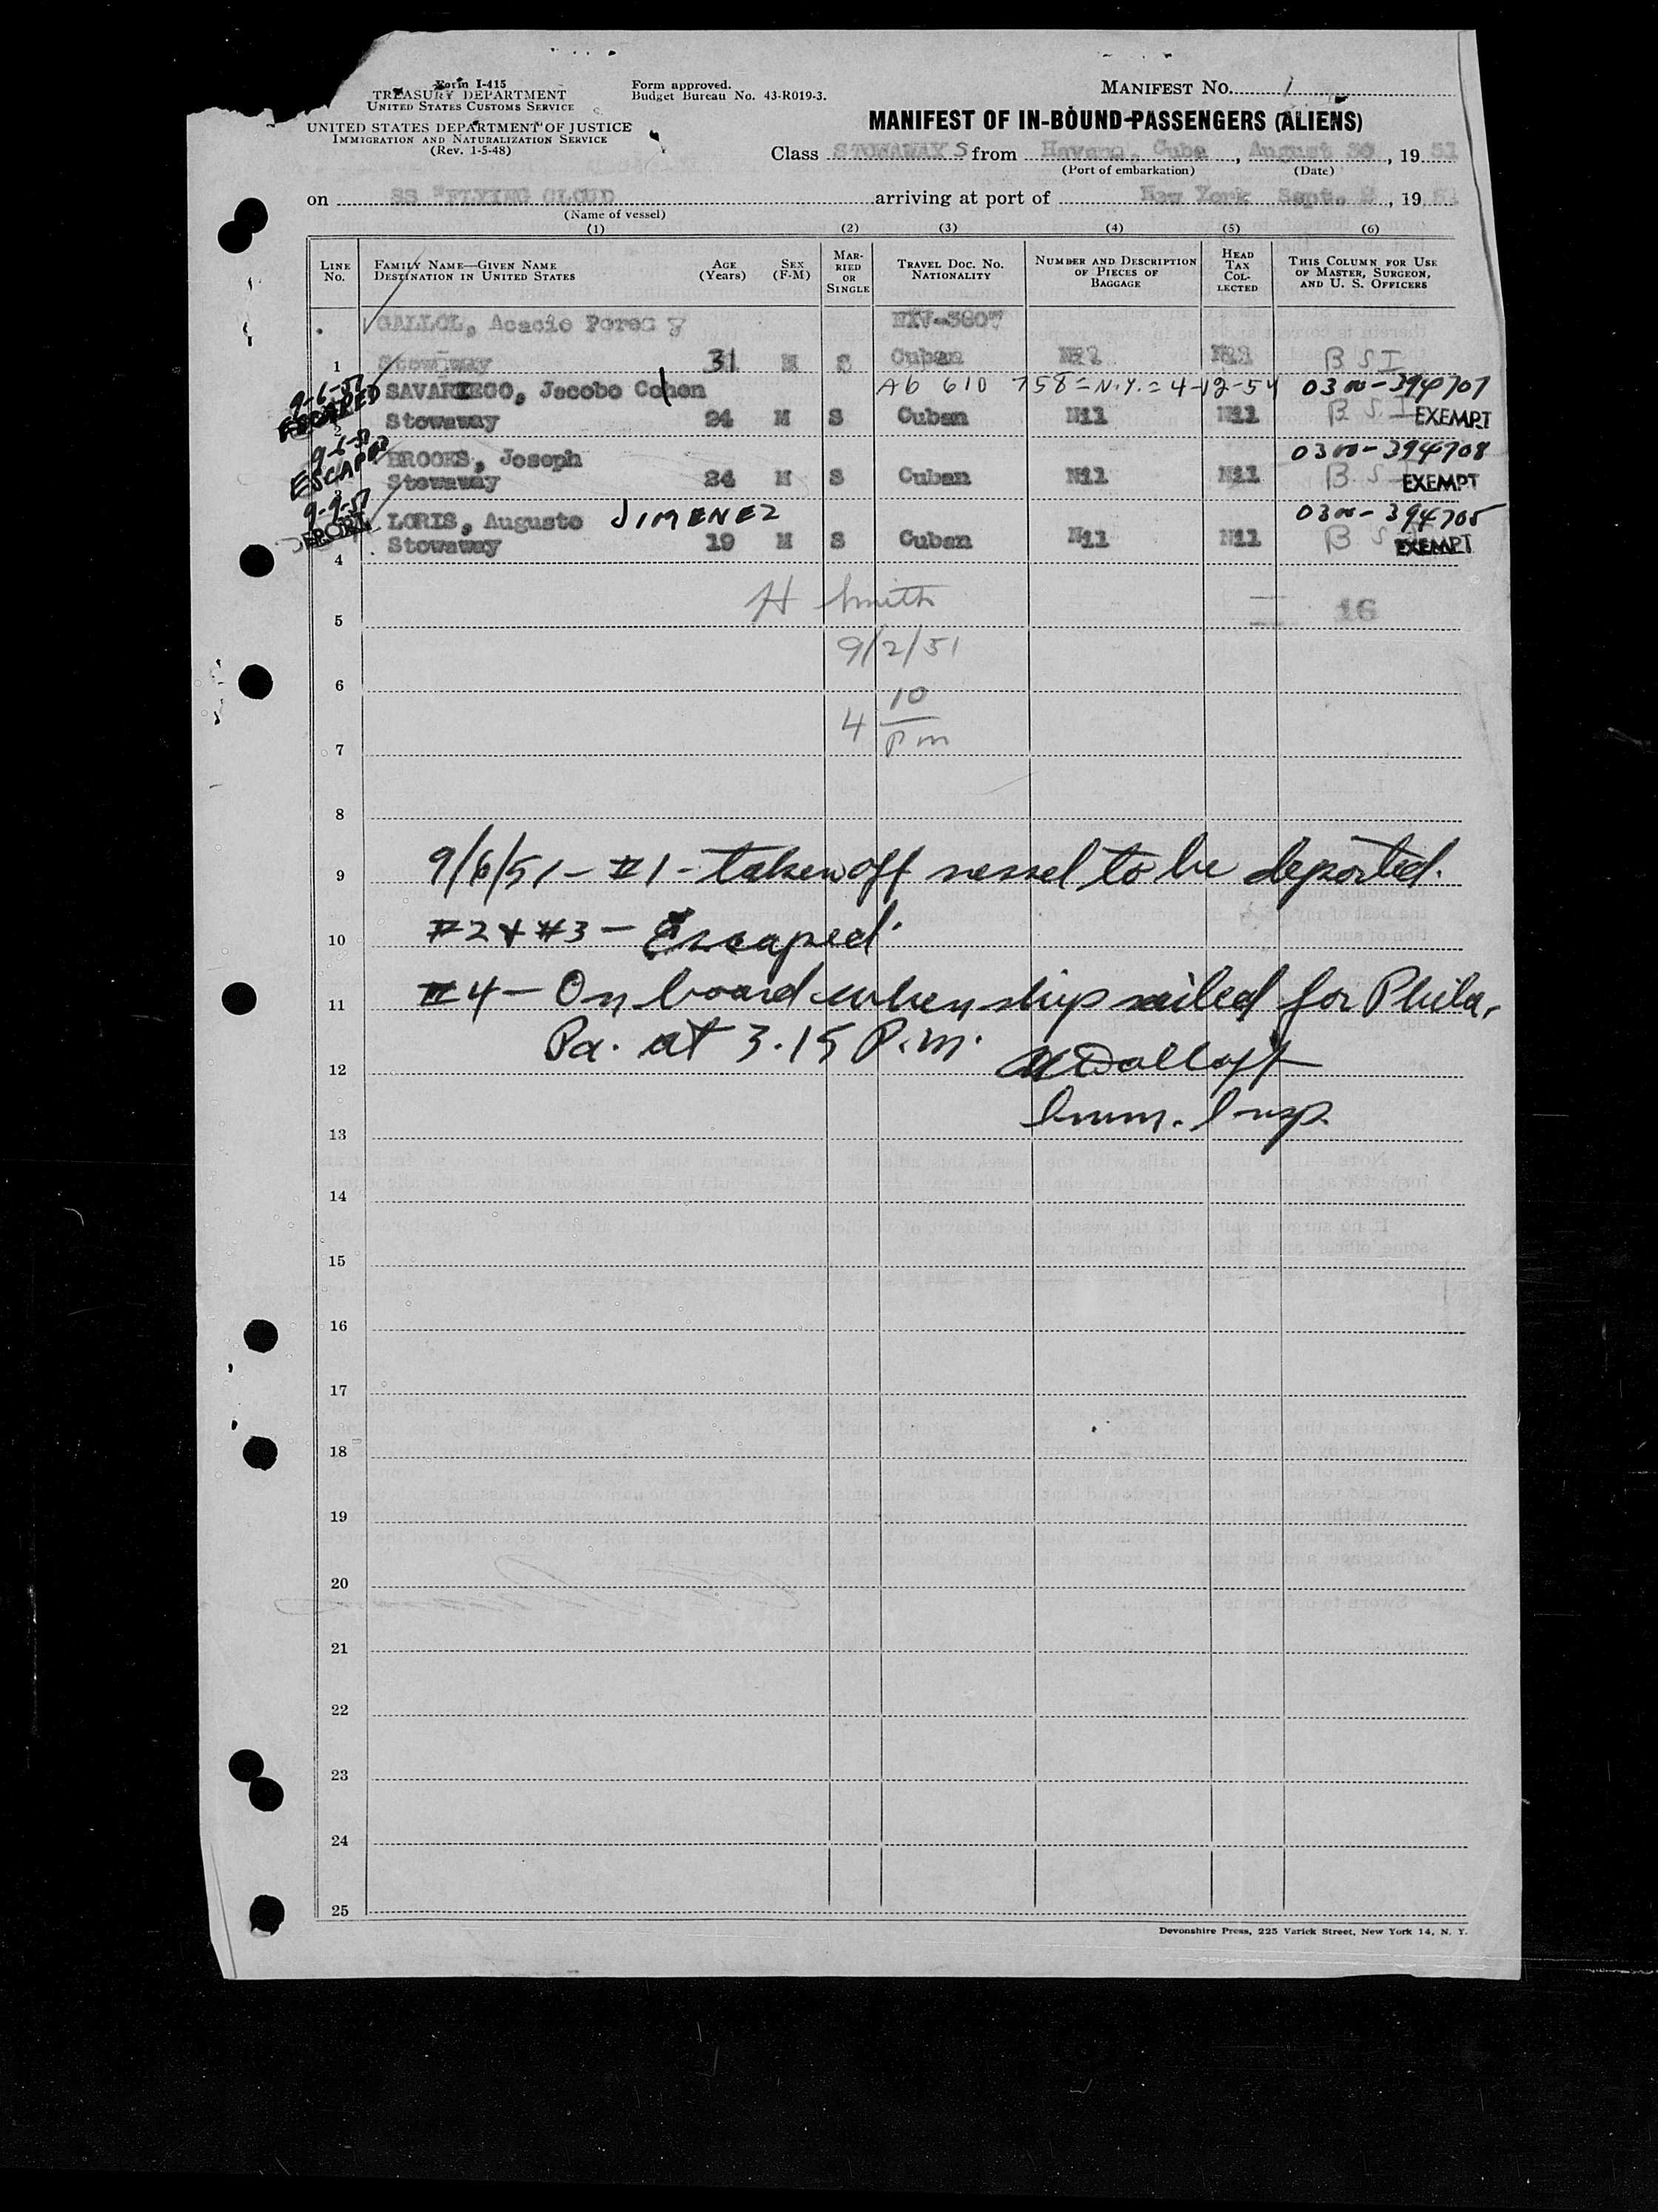 Form I-415
TREASURY DEPARTMENT
UNITED STATES CUSTOMS SERVICE
Form approved.
Budget Bureau No. 43-R019-3.
MANIFEST NO. 1
UNITED STATES DEPARTMENT OF JUSTICE
IMMIGRATION AND NATURALIZATION SERVICE
(Rev. 1-5-48)
MANIFEST OF IN-BOUND PASSENGERS (ALIENS)
Class STOWAWAY S from Havana, Cuba, August 30, 19 51
(Port of embarkation) (Date)
on SS "FLYING CLOUD arriving at port of New York Sept. 2, 19 51
(Name of vessel)
(1) (2) (3) (4) (5) (6)
LINE No. FAMILY NAME—GIVEN NAME DESTINATION IN UNITED STATES AGE (Years) SEX (F-M) MARRIED OR SINGLE TRAVEL DOC. NO. NATIONALITY NUMBER AND DESCRIPTION OF PIECES OF BAGGAGE HEAD TAX COLLECTED THIS COLUMN FOR USE OF MASTER, SURGEON, AND U. S. OFFICERS
GALLOL, Acacio Perez NIV-3807
1 Stowaway 31 M S Cuban Nil Nil B S I
9-6-51 SAVARIEGO, Jacobo Cohen A6 610 758 = N.Y. = 4-12-54 0300-394707
ESCAPED 2 Stowaway 24 M S Cuban Nil Nil B S I EXEMPT
9-6-51 BROOKS, Joseph 0300-394708
ESCAPED 3 Stowaway 24 M S Cuban Nil Nil B S I EXEMPT
9-9-51 LORIS, Augusto JIMENEZ 0300-394705
DEPORT. Stowaway 19 M S Cuban Nil Nil B S EXEMPT
4
H Smith 16
5
9/2/51
6
4 10
pm
7
8
9/6/51 - #1 - taken off vessel to be deported.
9
#2 & #3 - Escaped.
10
#4 - On board when ship sailed for Phila,
11
Pa. at 3.15 P.m.
12
Imm. Insp.
13
14
15
16
17
18
19
20
21
22
23
24
25
Devonshire Press, 225 Varick Street, New York 14, N. Y.